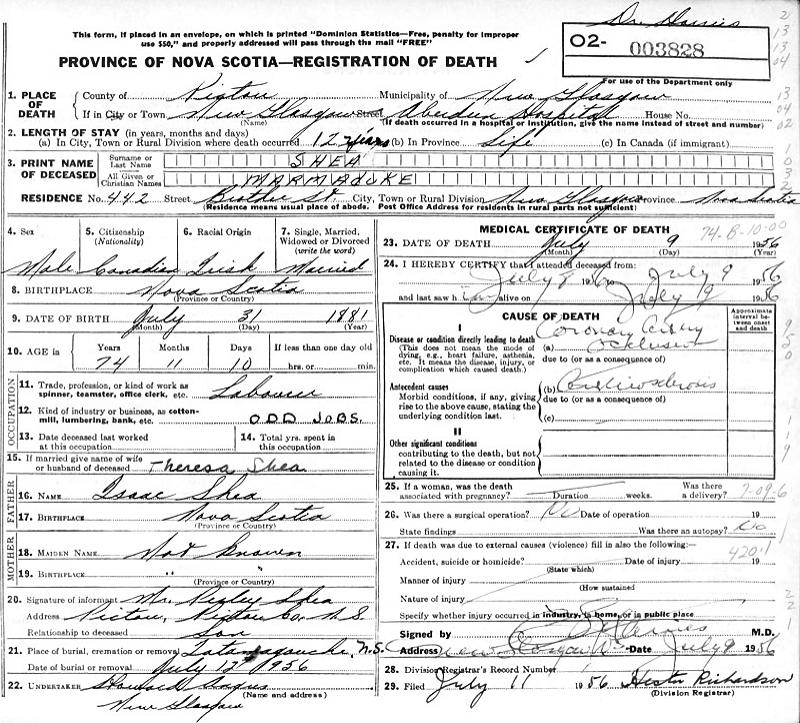 Dr. Harries
This form, if placed in an envelope, on which is printed "Dominion Statistics—Free, penalty for improper
use $50," and properly addressed will pass through the mail "FREE"
PROVINCE OF NOVA SCOTIA—REGISTRATION OF DEATH
02- 003828
For use of the Department only
1. PLACE OF DEATH County of Pictou Municipality of New Glasgow
If in City or Town New Glasgow Street Aberdeen Hospital House No.
(Name) (If death occurred in a hospital or institution, give the name instead of street and number)
2. LENGTH OF STAY (in years, months and days)
(a) In City, Town or Rural Division where death occurred 12 years (b) In Province Life (c) In Canada (if immigrant)
3. PRINT NAME OF DECEASED Surname or Last Name SHEA
All Given or Christian Names MARMADUKE
RESIDENCE No. 442 Street City, Town or Rural Division New Glasgow Province Nova Scotia
(Residence means usual place of abode. Post Office Address for residents in rural parts not sufficient)
4. Sex 5. Citizenship (Nationality) 6. Racial Origin 7. Single, Married, Widowed or Divorced (write the word)
Male Canadian Irish Married
8. BIRTHPLACE Nova Scotia
(Province or Country)
9. DATE OF BIRTH July 31 1881
(Month) (Day) (Year)
10. AGE in Years Months Days If less than one day old
74 11 10 hrs. or min.
OCCUPATION
11. Trade, profession, or kind of work as spinner, teamster, office clerk, etc. Labourer
12. Kind of industry or business, as cotton-mill, lumbering, bank, etc. ODD JOBS.
13. Date deceased last worked at this occupation 14. Total yrs. spent in this occupation
15. If married give name of wife or husband of deceased Theresa Shea
FATHER
16. Name Isaac Shea
17. BIRTHPLACE Nova Scotia
(Province or Country)
MOTHER
18. MAIDEN NAME Not Known
19. BIRTHPLACE " "
(Province or Country)
20. Signature of informant Mr. Shea
Address Pictou, Pictou Co. N.S.
Relationship to deceased son
21. Place of burial, cremation or removal Tatamagouche, N.S.
Date of burial or removal July 12 1956
22. UNDERTAKER Howard Angus
(Name and address)
New Glasgow
MEDICAL CERTIFICATE OF DEATH
74-8-10-00
23. DATE OF DEATH July 9 1956
(Month) (Day) (Year)
24. I HEREBY CERTIFY that I attended deceased from:
July 8 1956 to July 9 1956
and last saw him alive on July 9 1956
CAUSE OF DEATH
Approximate interval between onset and death
I
Disease or condition directly leading to death
(This does not mean the mode of dying, e.g., heart failure, asthenia, etc. It means the disease, injury, or complication which caused death.)
(a) Coronary Artery Occlusion
due to (or as a consequence of)
Antecedent causes
Morbid conditions, if any, giving rise to the above cause, stating the underlying condition last.
(b)
due to (or as a consequence of)
(c)
II
Other significant conditions
contributing to the death, but not related to the disease or condition causing it.
25. If a woman, was the death associated with pregnancy? Duration weeks. Was there a delivery?
7-09-6
26. Was there a surgical operation? No Date of operation 19
State findings Was there an autopsy? No
27. If death was due to external causes (violence) fill in also the following:—
420.1
Accident, suicide or homicide? Date of injury 19
(State which)
Manner of injury
(How sustained
Nature of injury
Specify whether injury occurred in industry, in home, or in public place
Signed by M.D.
Address New Glasgow Date July 9 1956
28. Division Registrar's Record Number
29. Filed July 11 1956 Hester Richardson
(Division Registrar)